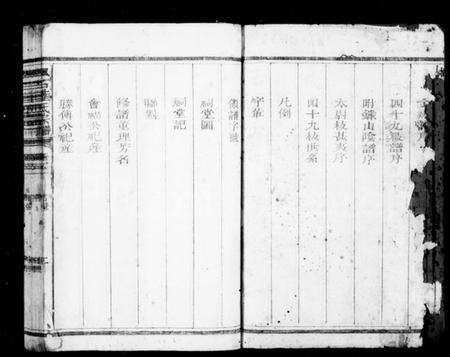 四十九世譜序
附錄山陰譜序
太尉枝世表序
四十九枝世系
凡例
字輩
領譜字號
祠堂圖
祠堂記
聯對
修譜董理芳名
會福公祀產
勝傳公祀產